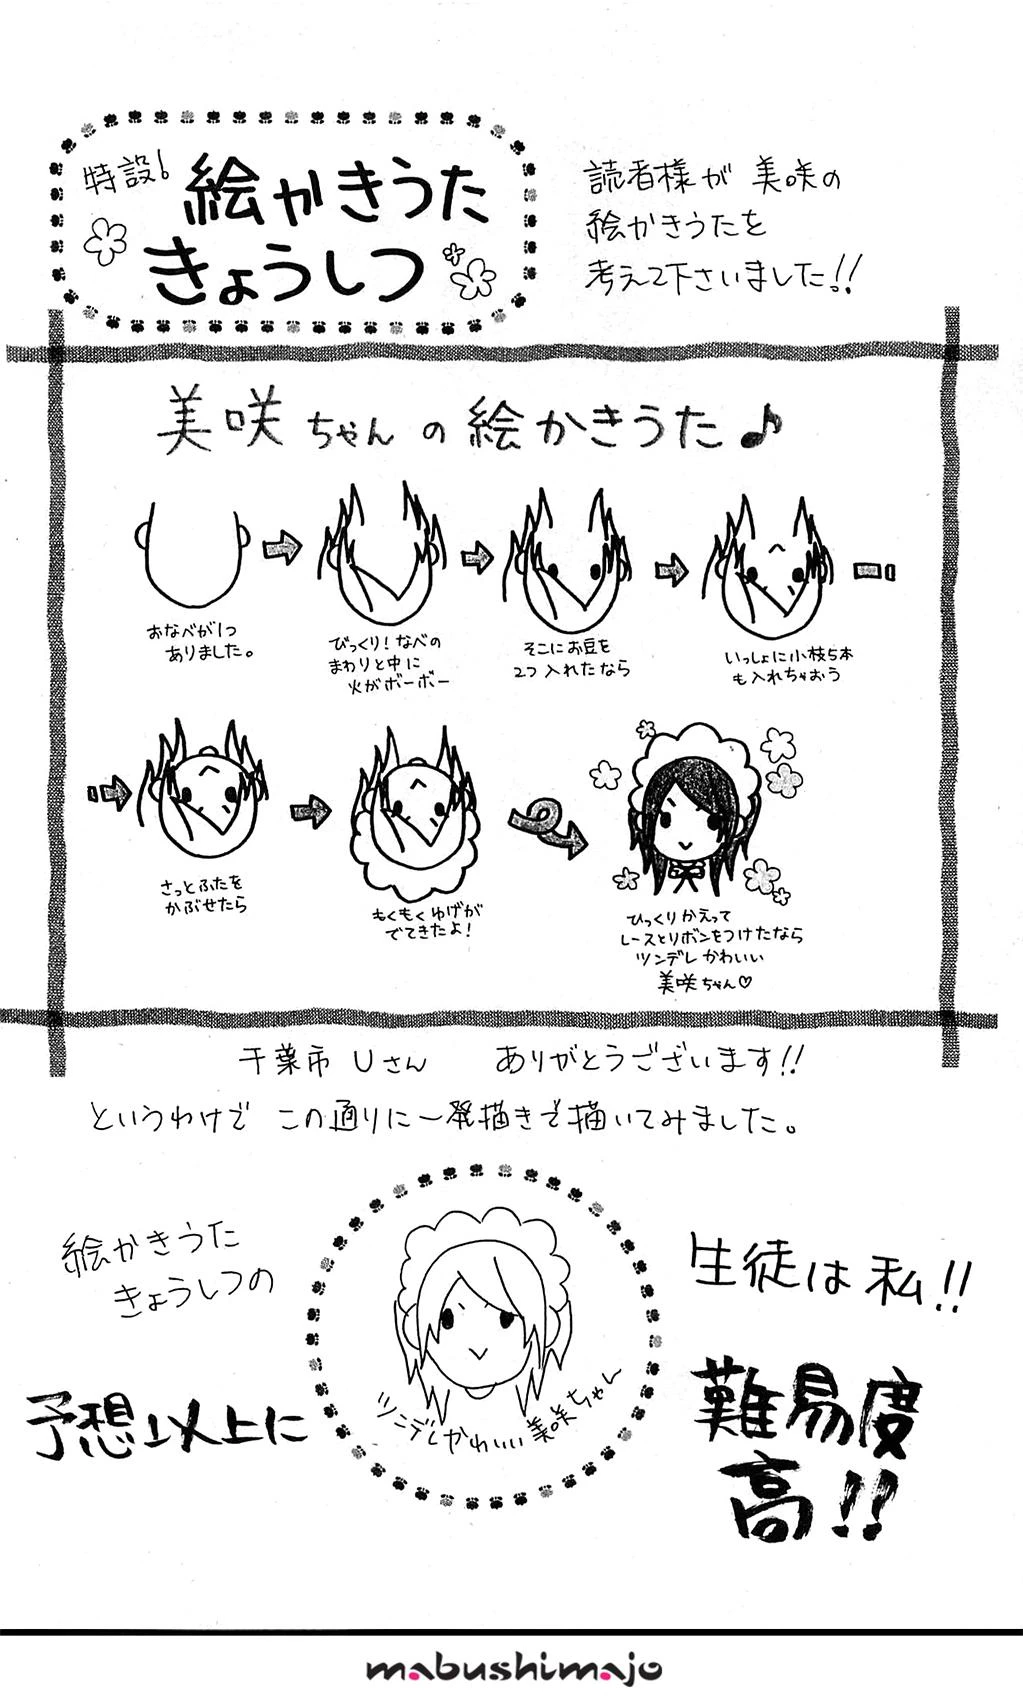 特設!
絵かきうた
きょうしつ
読者様が 美咲の
絵かきうたを
考えて下さいました!!
美咲ちゃんの絵かきうた♪
おなべが1つ
ありました。
びっくり!なべの
まわりと中に
火がボーボー
そこにお豆を
2つ入れたなら
いっしょに小枝5本
も入れちゃおう
さっとふたを
かぶせたら
もくもくゆげが
でてきたよ!
ひっくりかえって
レースとリボンをつけたなら
ツンデレかわいい
美咲ちゃん♡
千葉市 Uさん ありがとうございます!!
というわけで この通りに一発描きで描いてみました。
絵かきうた
きょうしつの
生徒は私!!
ツンデレかわいい美咲ちゃん
予想以上に
難易度
高!!
mabushimajo